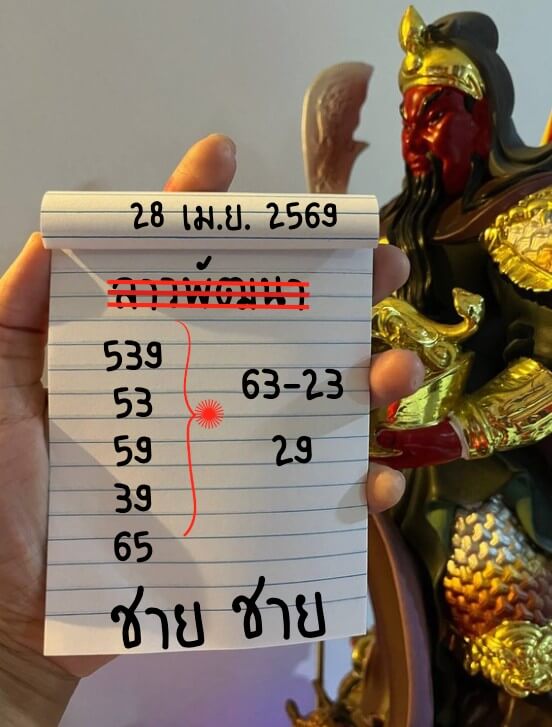 28 เม.ย. 2569
ลาวพัฒนา
539
53
59
39
65
63-23
29
ชาย ชาย